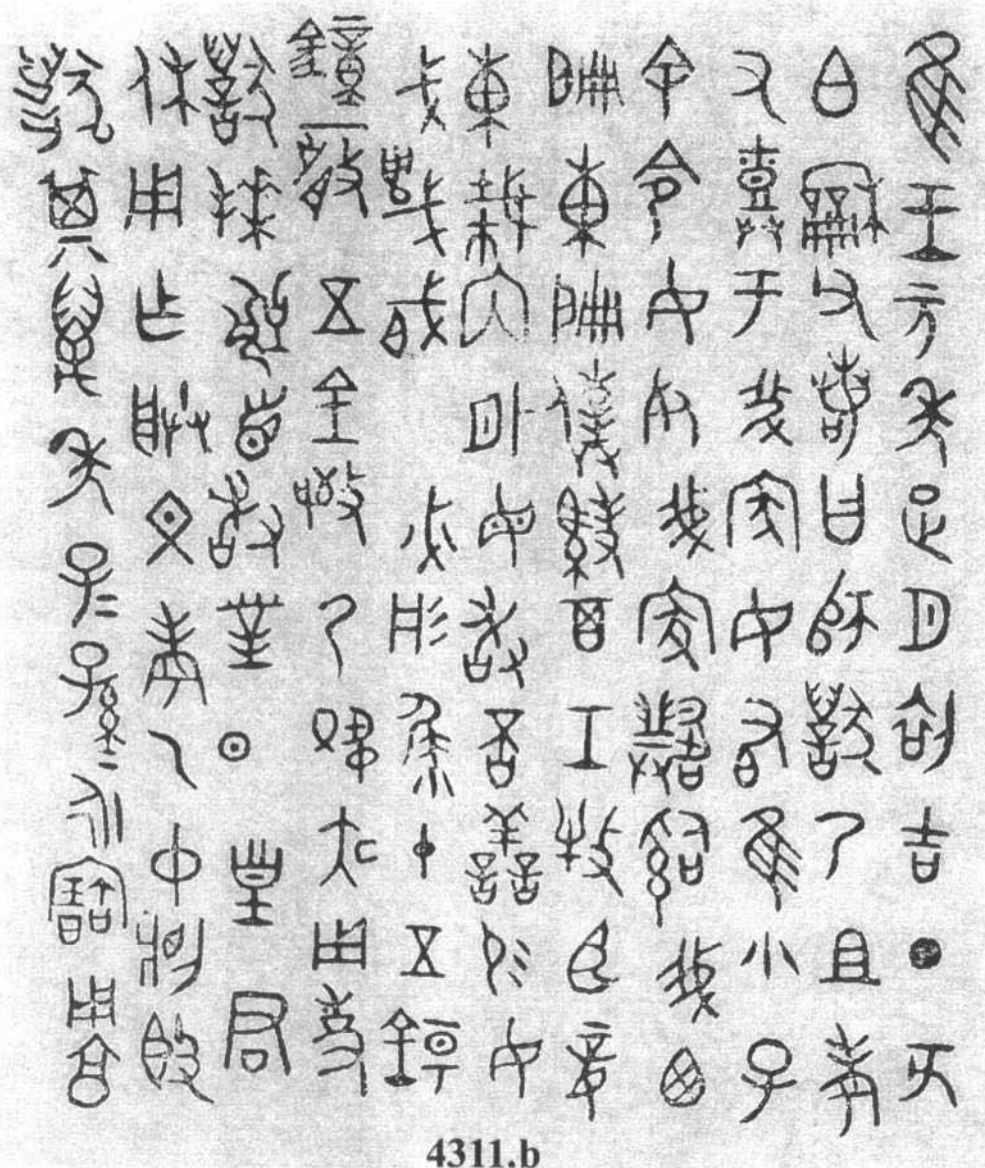 隹王元年正月初吉丁亥
白龢父若曰師獸乃且考
又于我家女有隹小子
余令女死我家𤔲我西
扁東扁僕馭百工牧臣妾
東裁內外毋敢否善易女
戈琱胾必彤十五錞
鐘一磬五金敬乃夙夜用事
獸拜稽首敢對揚皇君
休用乍朕文考乙中將𣪘
獸其萬年子=孫=永寶用享
4311.b